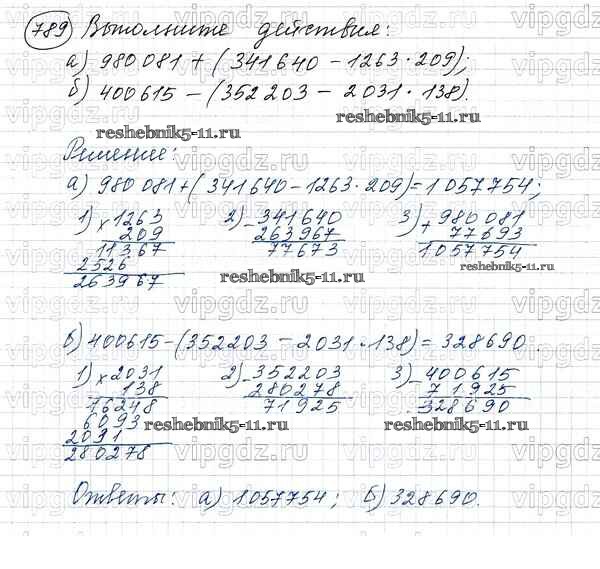 789 Выполните действия:
а) 980 081 + (341 640 - 1263 · 209);
б) 400 615 - (352 203 - 2031 · 138).
reshebnik5-11.ru
Решение:
а) 980 081 + (341 640 - 1263 · 209) = 1 057 754;
1) × 1263 2) - 341640 3) + 980 081
209 263967 77693
11367 77673 1057754
2526 reshebnik5-11.ru reshebnik5-11.ru
263967
б) 400615 - (352203 - 2031 · 138) = 328690.
1) × 2031 2) - 352203 3) - 400615
138 280278 71925
16248 71925 328690
6093 reshebnik5-11.ru reshebnik5-11.ru
2031
280278
Ответы: а) 1057754; б) 328690.
vipgdz.ru